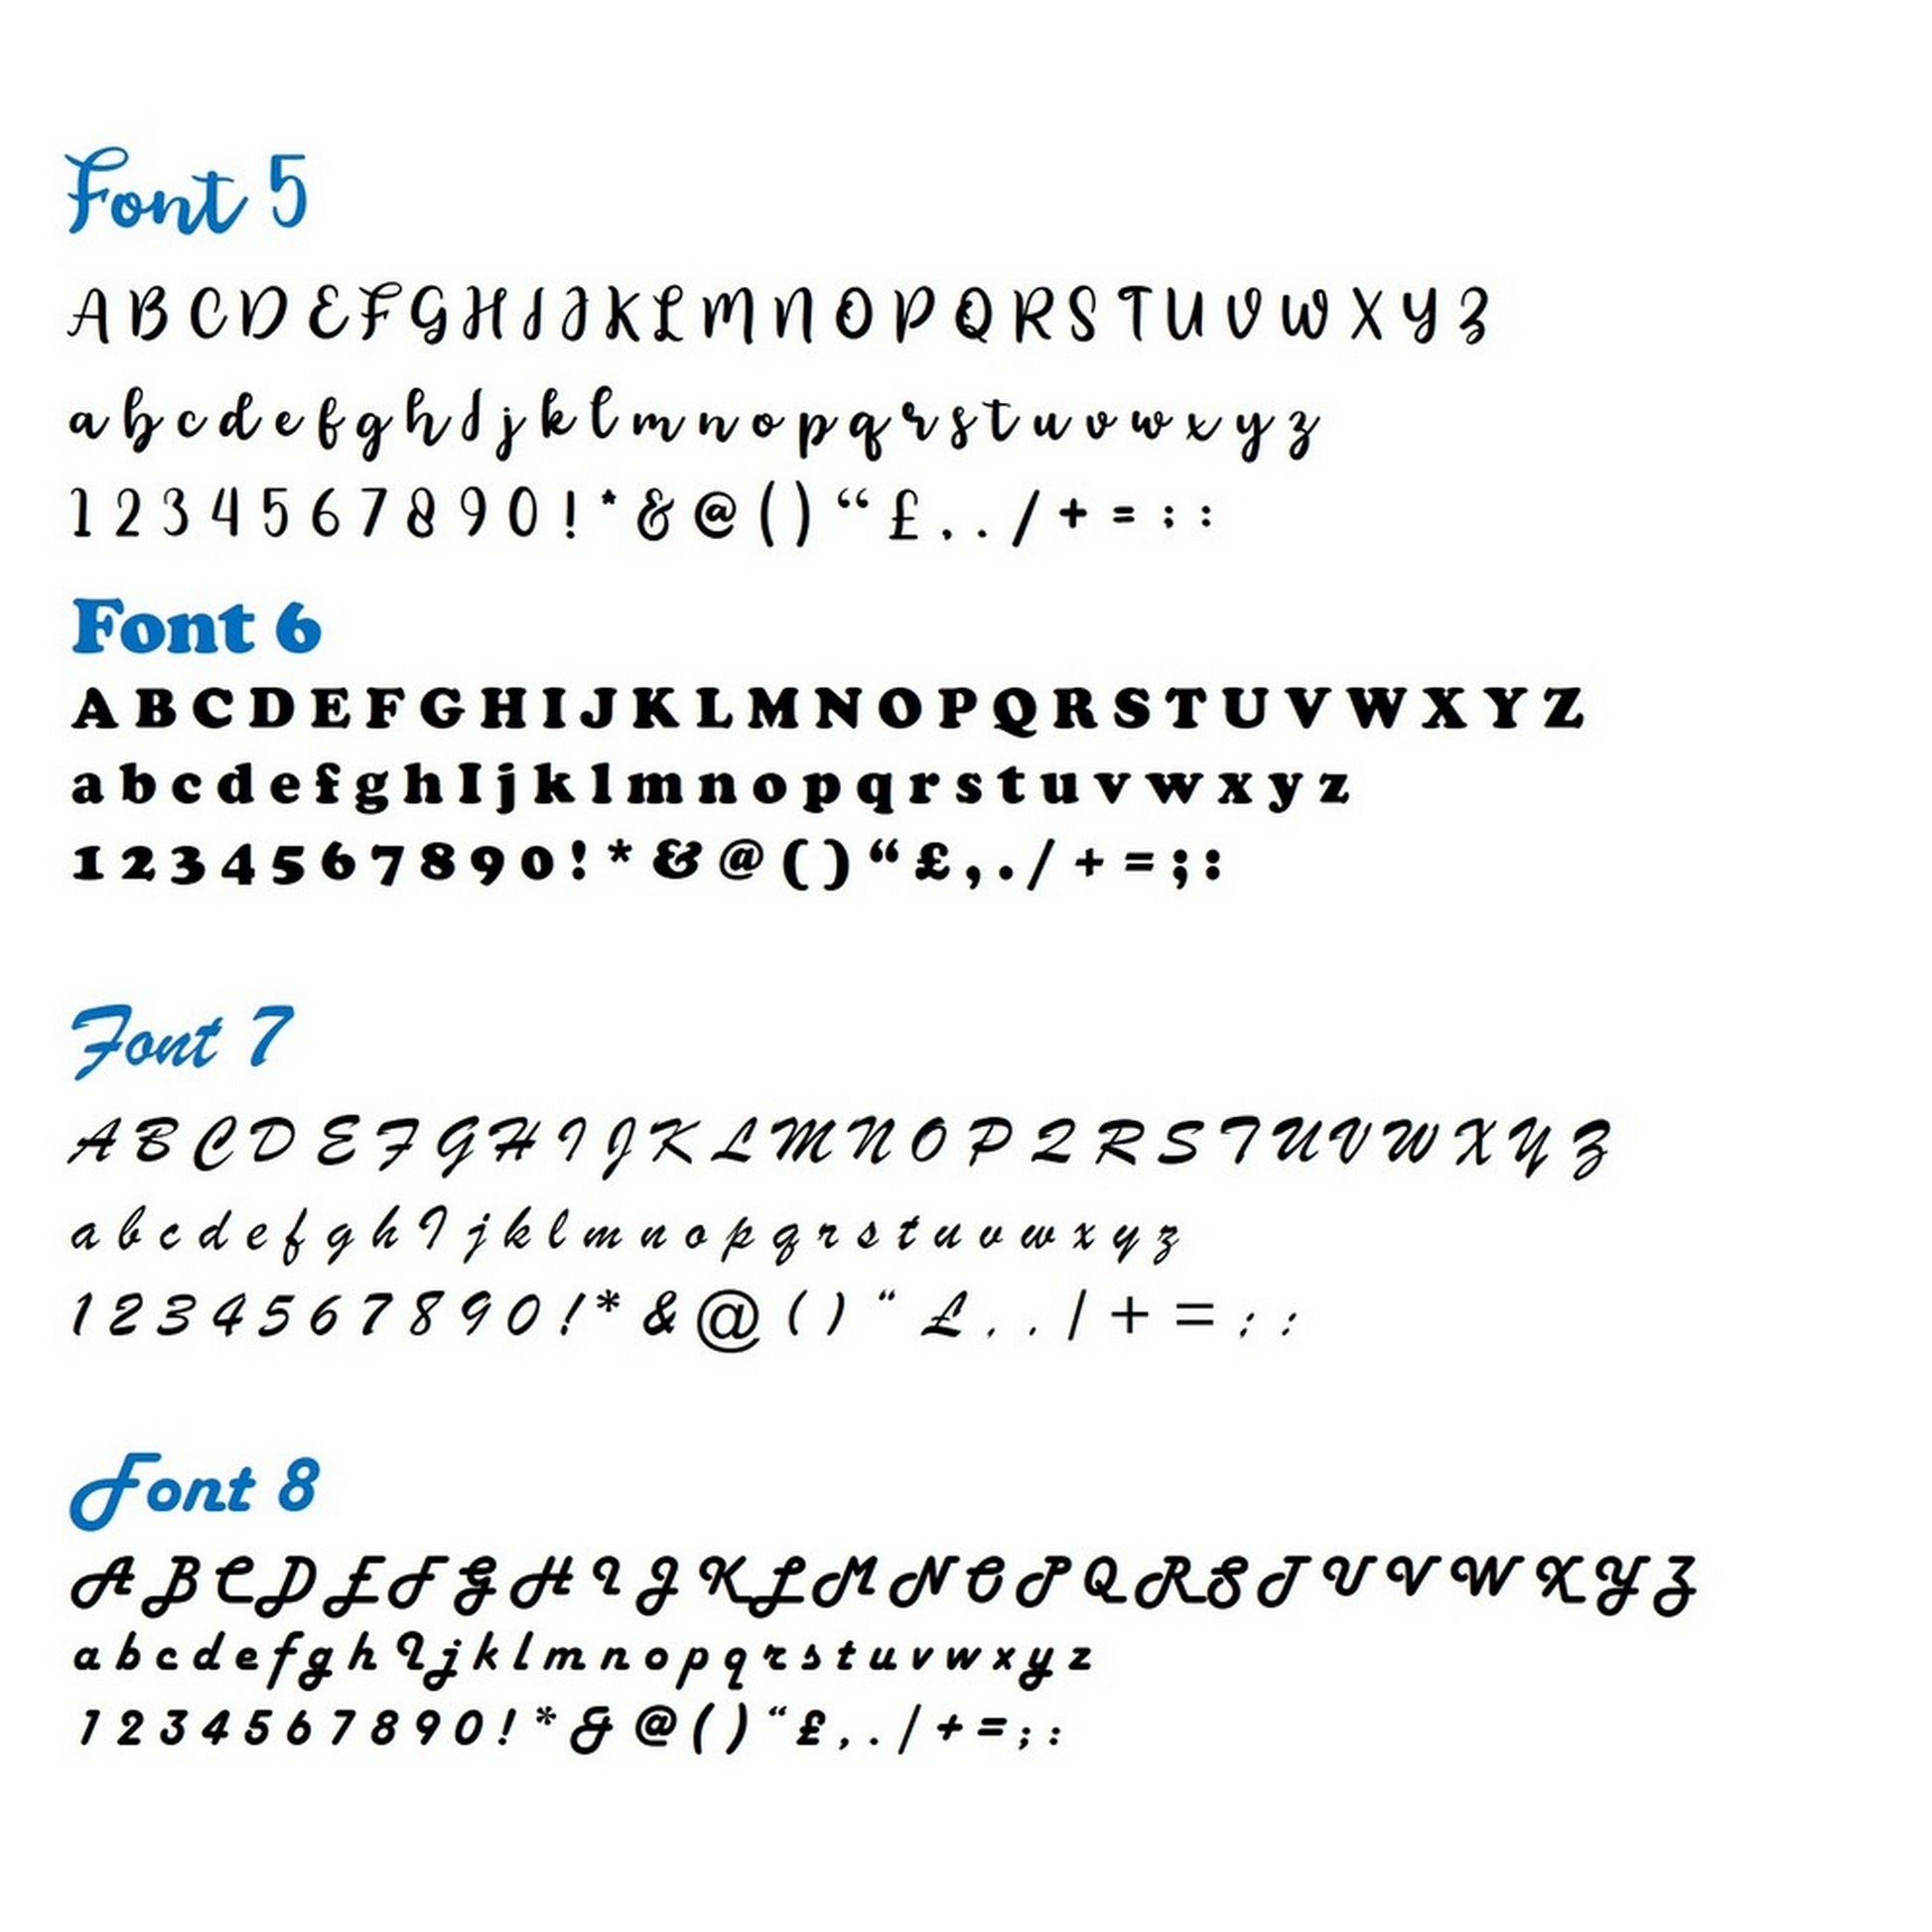 Font 5
A B C D E F G H I J K L M N O P Q R S T U V W X Y Z
a b c d e f g h I j k l m n o p q r s t u v w x y z
1 2 3 4 5 6 7 8 9 0 ! * & @ ( ) “ £ , . / + = ; :
Font 6
A B C D E F G H I J K L M N O P Q R S T U V W X Y Z
a b c d e f g h I j k l m n o p q r s t u v w x y z
1 2 3 4 5 6 7 8 9 0 ! * & @ ( ) “ £ , . / + = ; :
Font 7
A B C D E F G H I J K L M N O P Q R S T U V W X Y Z
a b c d e f g h I j k l m n o p q r s t u v w x y z
1 2 3 4 5 6 7 8 9 0 ! * & @ ( ) “ £ , . / + = ; :
Font 8
A B C D E F G H I J K L M N O P Q R S T U V W X Y Z
a b c d e f g h I j k l m n o p q r s t u v w x y z
1 2 3 4 5 6 7 8 9 0 ! * & @ ( ) “ £ , . / + = ; :